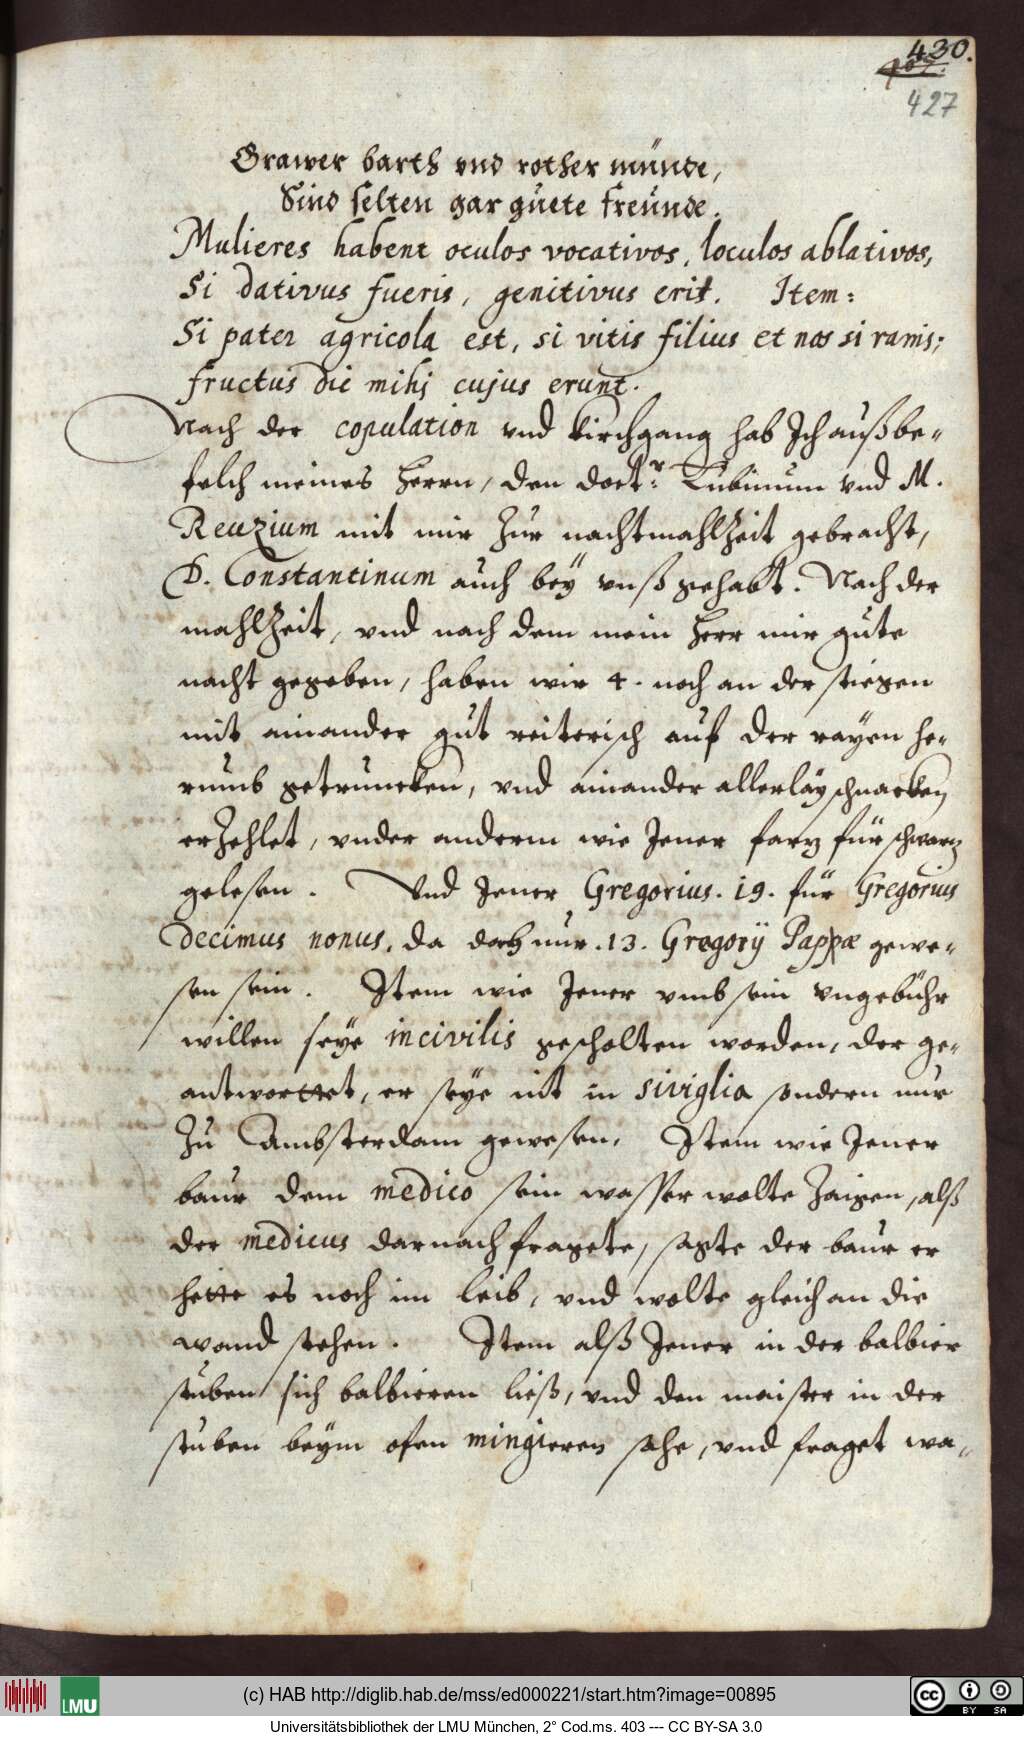 430.
427
Grawer barth vnd rother münde,
Sind selten gar guete freunde.
Mulieres habent oculos vocativos, loculos ablativos,
Si dativus fueris, genitivus erit. Item:
Si pater agricola est, si vitis filius et nos si ramis;
fructus dic mihj cujus erunt.
Nach der copulation vnd kirchgang hab Ich auß be-
felch meines herrn, den doctr: Lubinum vnd M.
Reuzium mit mir zur nachtmahlzeit gebracht,
D. Constantinum auch beÿ vnß gehabt. Nach der
mahlzeit, vnd nach dem mein herr mir gute
nacht gegeben, haben wir 4. noch an der stiegen
mit ainander gut reiterisch auf der rayen he-
rumb getruncken, vnd ainander allerlaÿ schnacken
erzehlet, vnder anderm wie Jener farz für schwarz
gelesen. Vnd Jener Gregorius. 19. für Gregorius
decimus nonus, da doch nur .13. Gregorÿ Pappæ gewe-
sen sein. Item wie Jener vmb sein vngebühr
willen seye incivilis gescholten worden, der ge-
antworttet, er seye nit in siviglia sondern nur
zu Ambsterdam gewesen. Item wie Jener
baur dem medico sein wasser wolte zaigen, alß
der medicus darnach fragete, sagte der baur er
hette es noch im leib, vnd wolte gleich an die
wand stehen. Item alß Jener in der balbier
stuben sich balbieren ließ, vnd den maister in der
stuben beÿm ofen mingieren sahe, vnd fraget wa-
LMU
(c) HAB http://diglib.hab.de/mss/ed000221/start.htm?image=00895
cc BY SA
Universitätsbibliothek der LMU München, 2° Cod.ms. 403 --- CC BY-SA 3.0